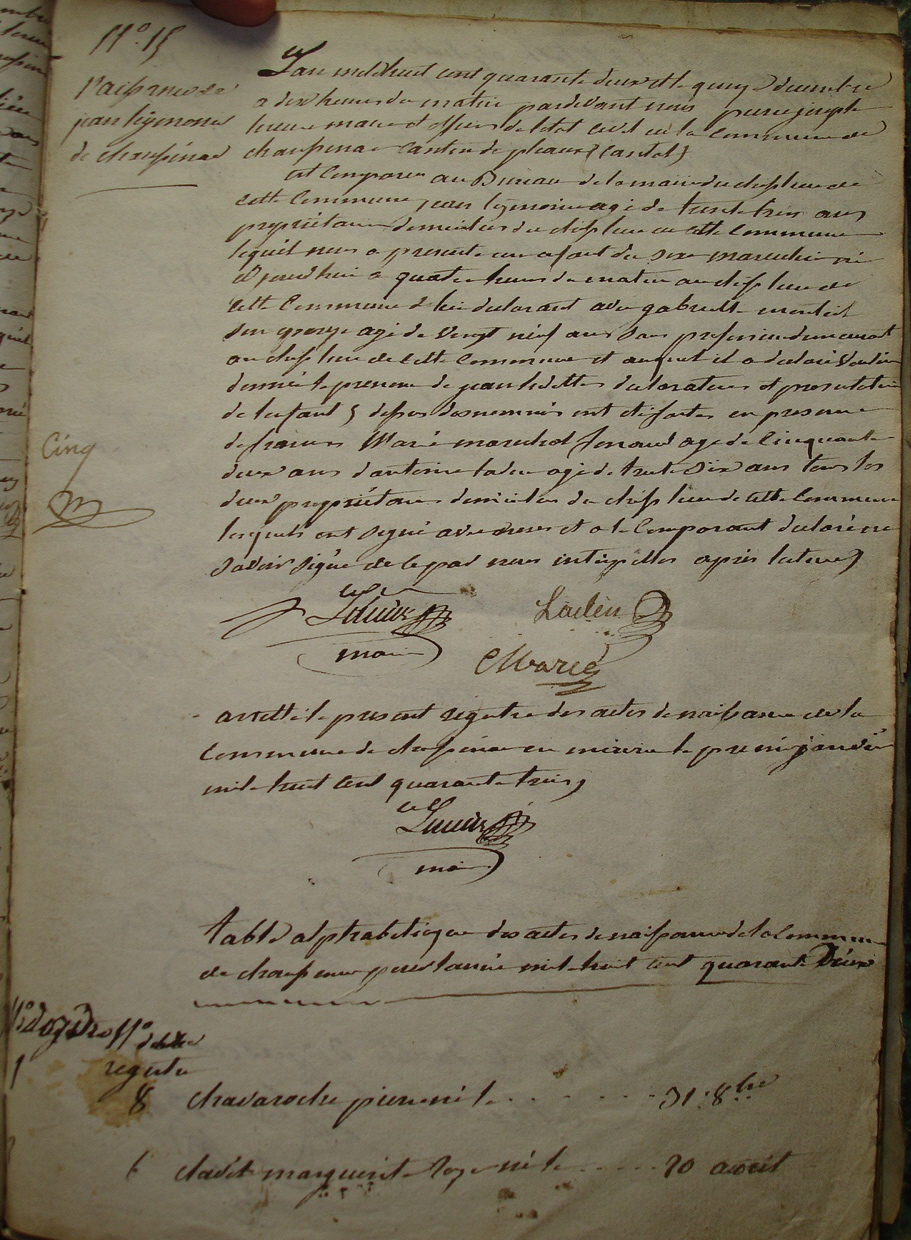 N°. 15
Naissance de
jean lizmone
de chaussenac
L'an mil huit cent quarante deux et le quinze décembre
a dix heures du matin pardevant nous pierre joseph
maire et officier de l'etat civil de la Commune de
chaussenac canton de pleaux (Cantal)
est Comparu au Bureau de la mairie du chef lieu de
cette Commune jean agé de trente trois ans
propriétaire domicilié du chef lieu de cette Commune
lequel nous a presenté un enfant du sexe masculin né
aujourd'hui a quatre heures du matin au chef lieu de
cette Commune de lui declarant avec gabrielle
son epouse agé de vingt neuf ans sans profession demeurant
au chef lieu de cette Commune et auquel il a déclaré vouloir
donné le prenom de jean lesdittes declaration et presentation
de l'enfant ont été faites en presence
de françois Marie marechal ferrand agé de Cinquante
deux ans d'antoine laden agé de trente six ans tous les
deux propriétaires domiciliés du chef lieu de cette Commune
lesquels ont signé avec nous et a le Comparant declaré ne
savoir signé de ce par nous interpellé après lecture
Cinq
maire
Marie
arretté le present registre des actes de naissance de la
Commune de chaussenac en mairie le premier janvier
mil huit cent quarante trois
maire
table alphabetique des actes de naissance de la Commune
de chaussenac pour l'année mil huit cent quarante Deux
N° d'ordre N° du
registre
1
8 chavaroche pierre né le . . . . . 31 8bre
6 clavet marguerite né le . . . . . 20 aout